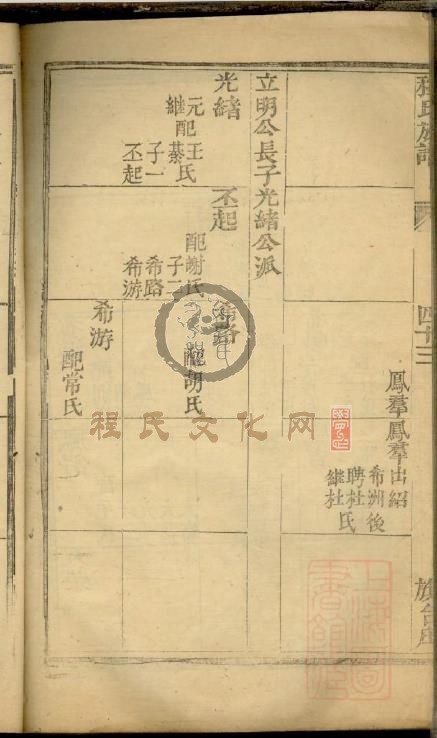 程氏族譜
四十三
鳳羣鳳羣出紹
希洲後
聘杜氏
繼杜
立明公長子光緒公派
光緒
元配王氏
繼配綦氏
子一
丕起
丕起
配謝氏
子二
希路
希游
希路
配胡氏
希游
配常氏
程氏文化网